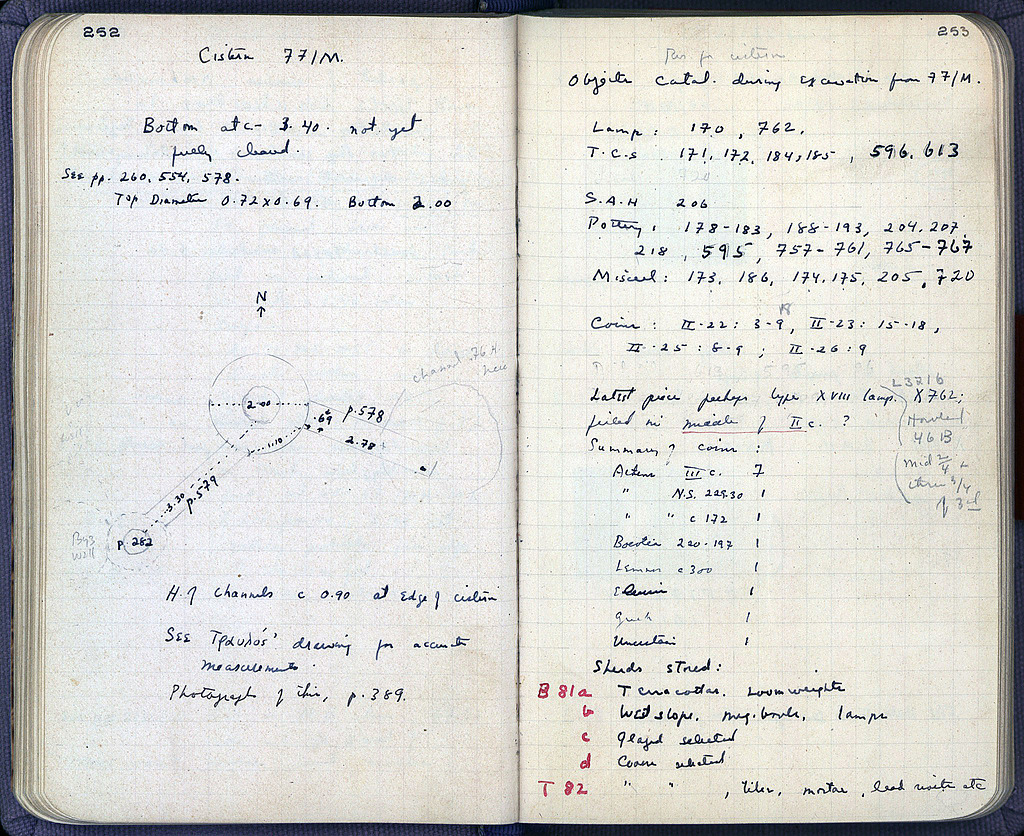 252
Cistern 77/M.
Bottom at c- 3.40. not yet
fully cleared.
See pp. 260, 554, 578.
Top Diameter 0.72x0.69. Bottom 2.00
N
channel 76.H
here
2.00
.69
p.578
1.10
2.78
a
3.30
p.579
well
Byz
well
p. 282
H. of Channels c 0.90 at Edge of cistern
See Τραυλός' drawing for accurate
measurements.
Photograph of this, p. 389.
253
for cistern
Objects Catal. during Excavation from 77/M.
Lamp: 170, 762.
T.C.s 171, 172, 184, 185, 596, 613
720
S.A.H 206
Pottery: 178-183, 188-193, 204, 207
218, 595, 757-761, 765-767
Miscel: 173, 186, 174, 175, 205, 720
Coins: II-22: 3-9, II-23: 15-18,
II-25: 8-9; II-26: 9
Latest piece perhaps type XVIII lamp. X762;
filled in middle of II c. ?
L3216
Howland
46B
mid 2/4
three 3/4
of 3rd
Summary of coins:
Athens III c. 7
" N.S. 229.30 1
" " c 172 1
Boeotia 220-197 1
Lemnos c 300 1
Eleusis 1
Greek 1
Uncertain 1
Sherds stored:
B 81a Terracottas. Loomweights
b West slope, meg. bowls, lamps
c Glazed selected
d Coarse selected
T 82 " ", tiles, mortar, lead rivets etc